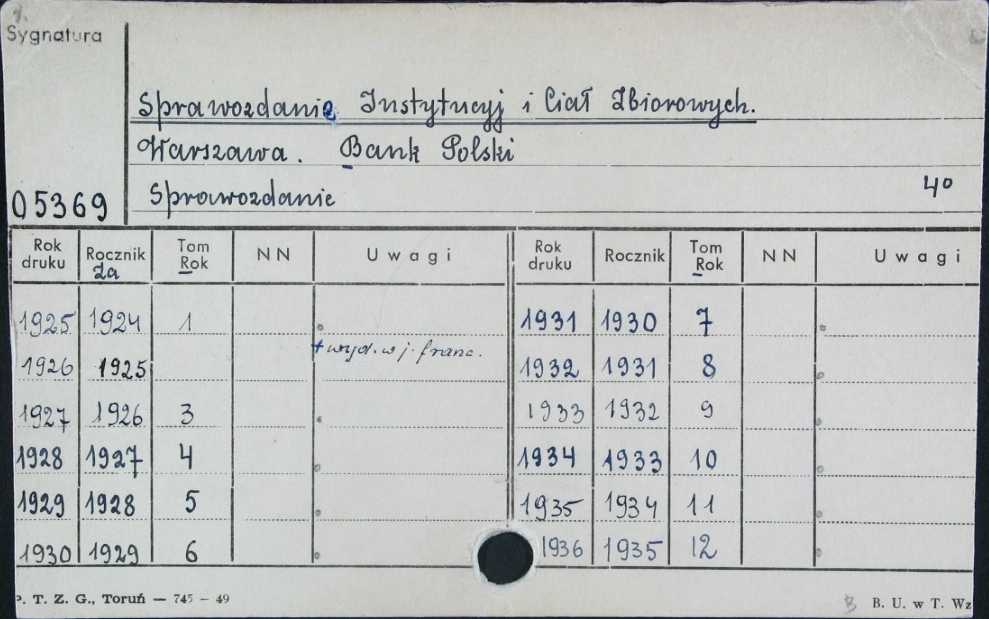 Sygnatura
Sprawozdanie Instytucyj i Ciał Zbiorowych.
Warszawa. Bank Polski
Sprawozdanie 4º
05369
Rok druku Rocznik za Tom Rok NN Uwagi Rok druku Rocznik Tom Rok NN Uwagi
1925 1924 1 1931 1930 7
+ wyd. w j. franc.
1926 1925 1932 1931 8
1927 1926 3 1933 1932 9
1928 1927 4 1934 1933 10
1929 1928 5 1935 1934 11
1930 1929 6 1936 1935 12
P. T. Z. G., Toruń — 745 – 49 B B. U. w T. Wz